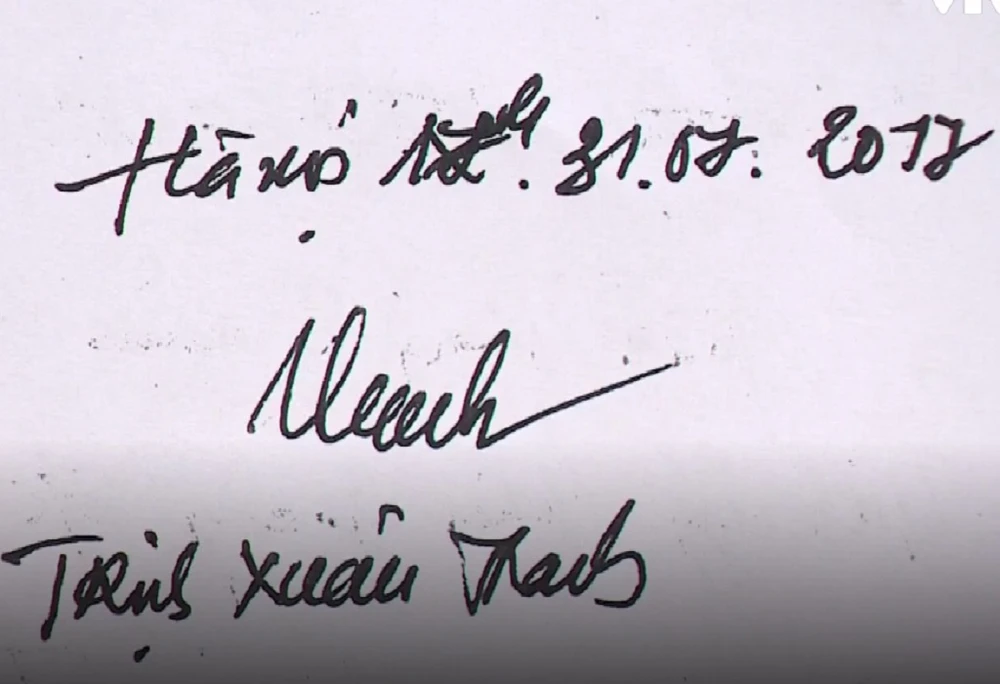 VTV
Hà nội 17h. 31.07. 2017
Trịnh Xuân Thanh